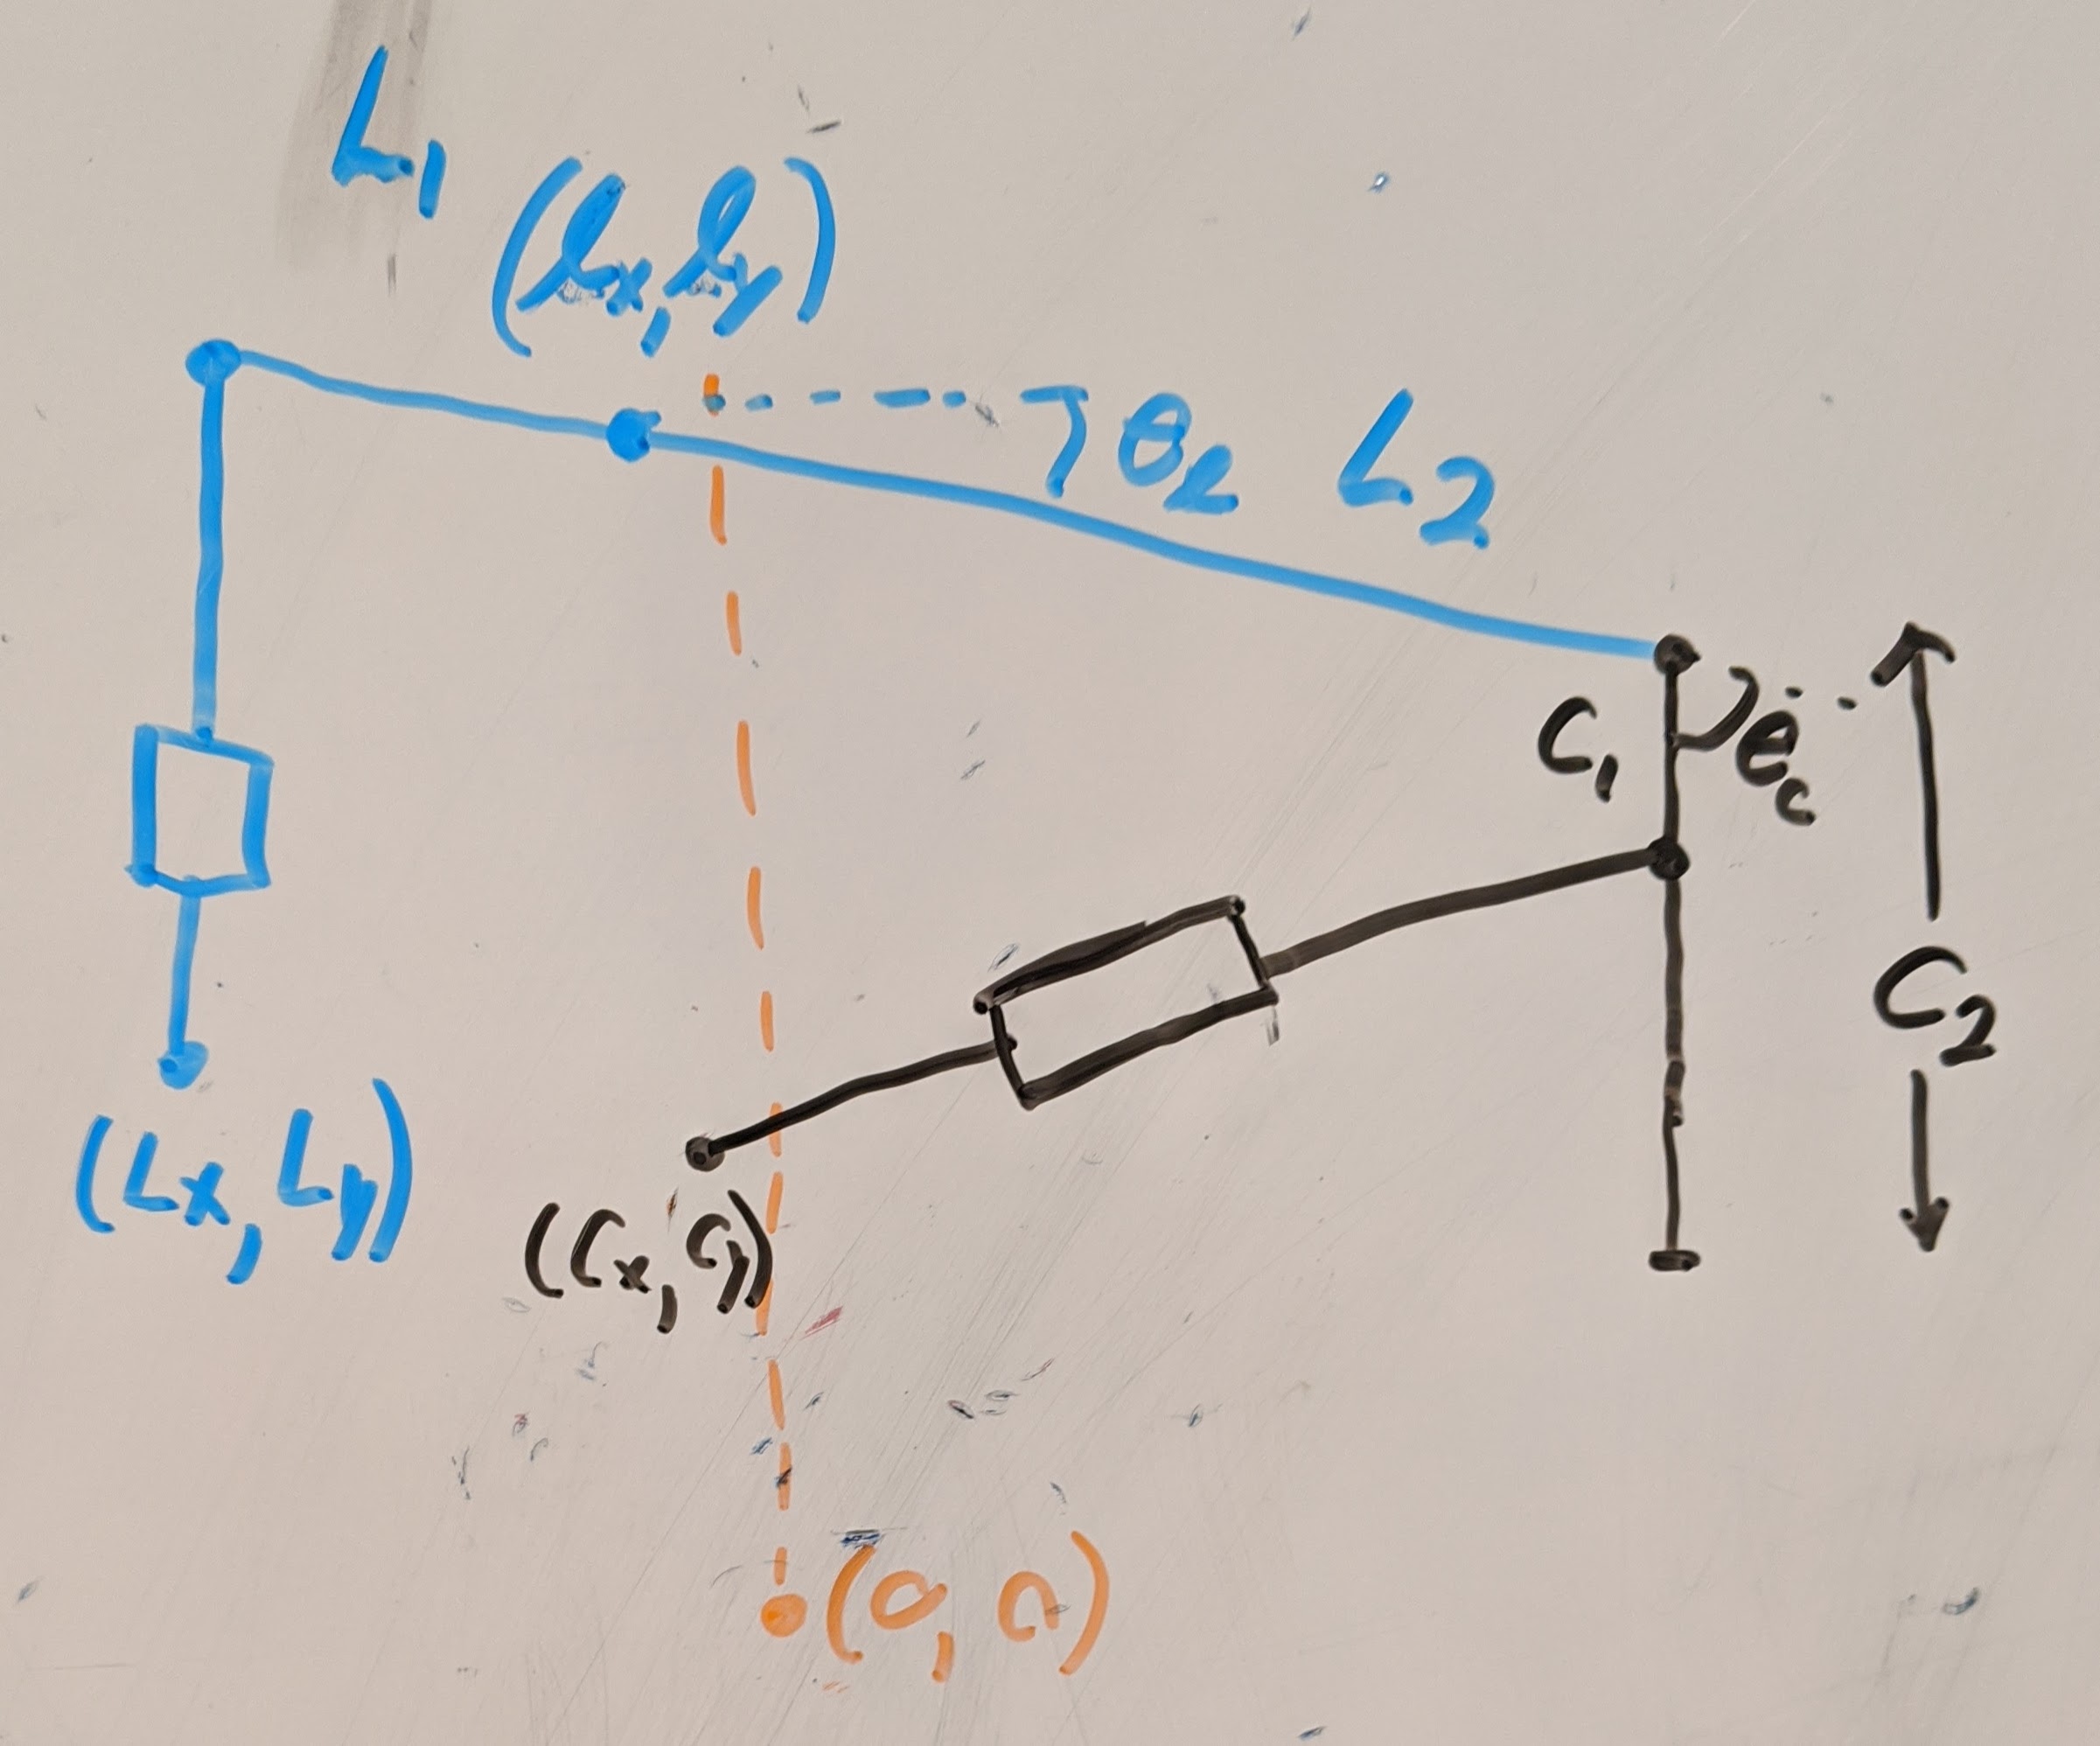 L1
(lx, ly)
θl L2
C1 θc
C2
(Lx, Ly)
(Cx, Cy)
(0, 0)